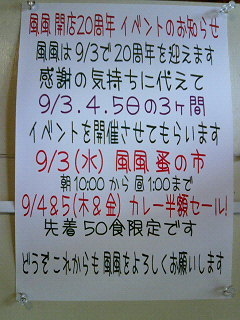 風風 開店20周年 イベントのお知らせ
風風は9/3で20周年を迎えます
感謝の気持ちに代えて
9/3.4.5日の3ヶ間
イベントを開催させてもらいます
9/3(水) 風風 蚤の市
朝10:00から昼1:00まで
9/4&5(木&金) カレー半額セール!
先着50食限定です
どうぞこれからも風風をよろしくお願いします